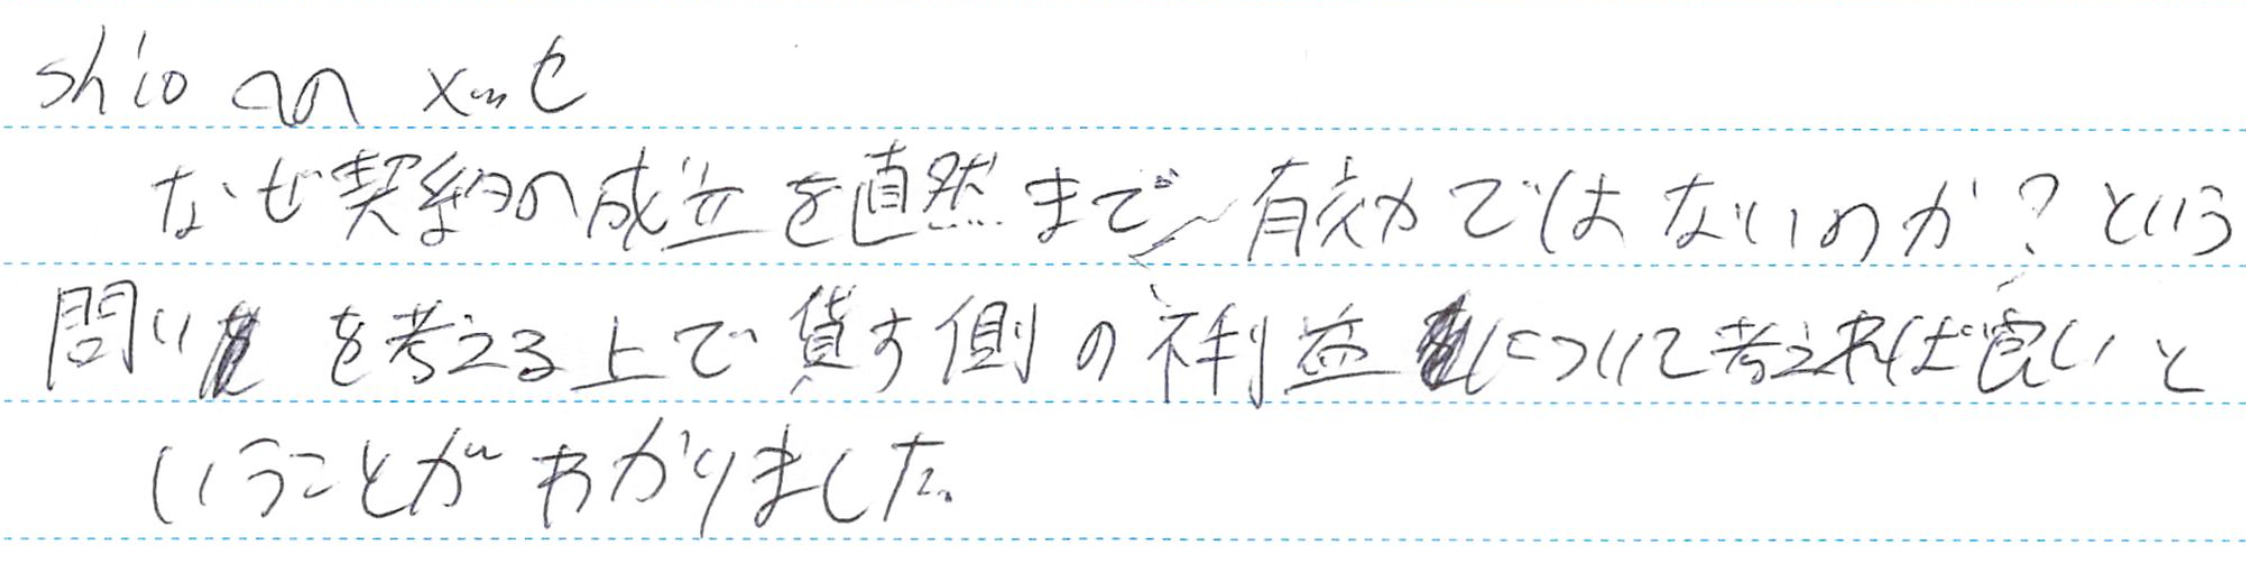 shioのメモ
なぜ契約の成立を直然まで有効ではないのか?という
問いを考える上で貸す側の利益について考えれば良いと
いうことがわかりました。